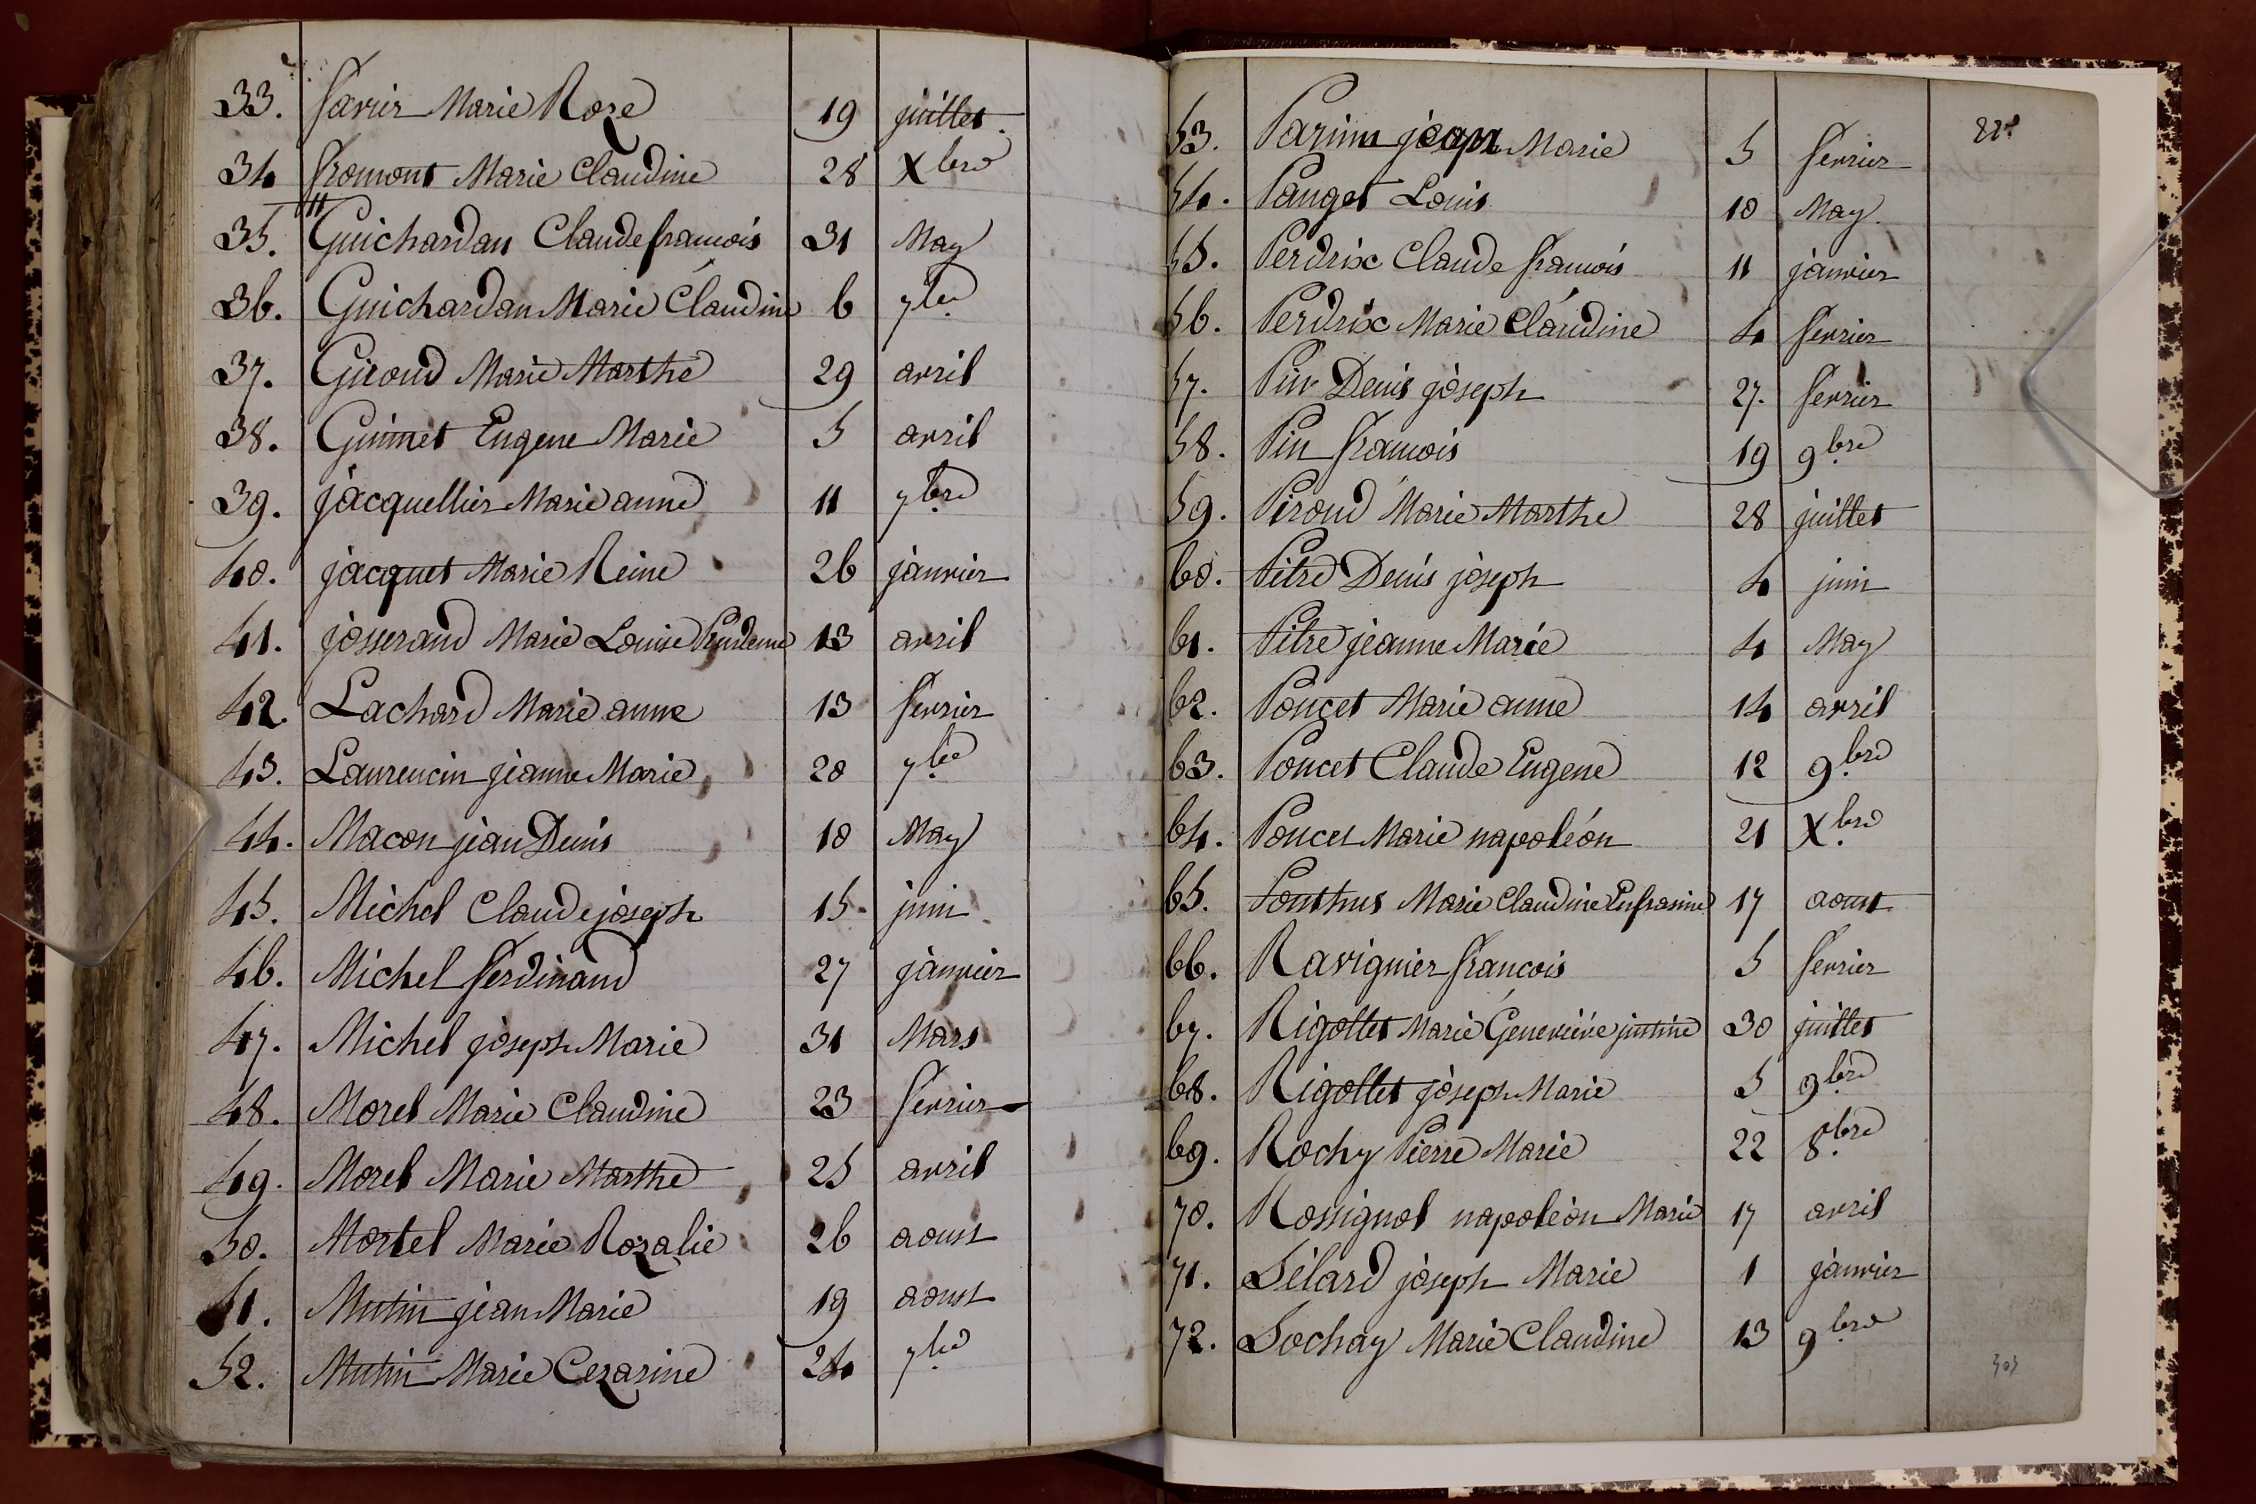 33. favier Marie Roze 19 juillet.
34 fromont Marie Claudine 28 Xbre
35. Guichardan Claude francois 31 May
36. Guichardan Marie Claudine 6 7bre
37. Giroud Marie Marthe 29 avril
38. Guimet Eugene Marie 5 avril
39. jacquellier Marie anne 11 7bre
40. jacquet Marie Reine 26 janvier
41. josserand Marie Louise 13 avril
42. Lachard Marie anne 13 fevrier
43. Laurencin jeanne Marie 20 7bre
44. Macon jean Denis 10 May
45. Michel Claude joseph 15 juin
46. Michel ferdinand 27 janvier
47. Michel joseph Marie 31 Mars
48. Morel Marie Claudine 23 fevrier
49. Morel Marie Marthe 25 avril
50. Mortel Marie Rozalie 26 aoust
51. Mutin jean Marie 19 aoust
52. Mutin Marie Cezarine 24 7bre
53. jean Marie 5 fevrier
54. Panget Louis 10 May
55. Perdrix Claude francois 11 janvier
56. Perdrix Marie Claudine 4 fevrier
57. Pin Denis joseph 27. fevrier
58. Pin francois 19 9bre
59. Piroud Marie Marthe 28 juillet
60. Pitre Denis joseph 4 juin
61. Pitre jeanne Marie 4 May
62. Poncet Marie anne 14 avril
63. Poncet Claude Eugene 12 9bre
64. Poncet Marie napoléon 21 Xbre
65. Ponthus Marie Claudine Eufrasine 17 aoust
66. Ravignier francois 5 fevrier
67. Rigollet Marie Geneviéve justine 30 juillet
68. Rigollet joseph Marie 5 9bre
69. Rochy Pierre Marie 22 8bre
70. Rossignol napoléon Marie 17 avril
71. Sélard joseph Marie 1 janvier
72. Sochay Marie Claudine 13 9bre